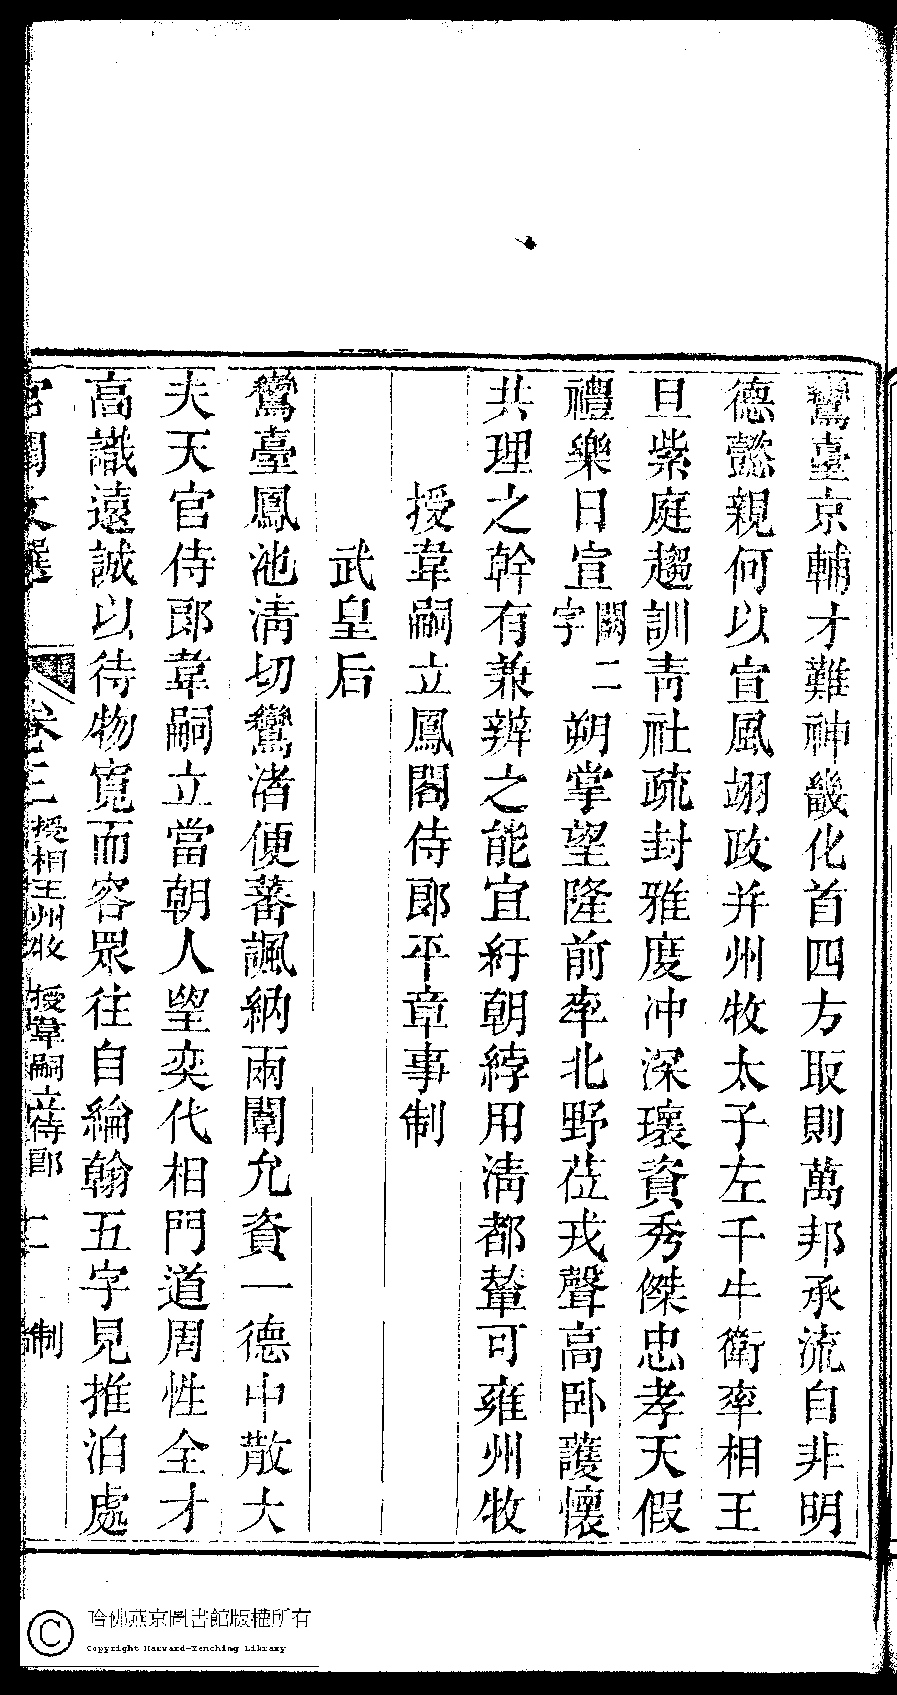 鸞臺京輔才難神畿化首四方取則萬邦承流自非明
德懿親何以宣風翊政并州牧太子左千牛衛率相王
旦紫庭趨訓青社疏封雅度冲深瓌資秀傑忠孝天假
禮樂日宣闕二字朔掌望隆前率北野莅戎聲高卧護懷
共理之幹有兼辦之能宜紆朝綍用清都輦可雍州牧
授韋嗣立鳳閣侍郎平章事制
武皇后
鸞臺鳳池清切鸞渚便蕃諷納兩闈允資一德中散大
夫天官侍郎韋嗣立當朝人望奕代相門道周性全才
高識遠誠以待物寬而容眾往自綸翰五字見推洎處
宮闈文選 卷三 授相王州牧 授韋嗣立侍郎 二 制
哈佛燕京圖書館版權所有
Copyright Harvard-Yenching Library